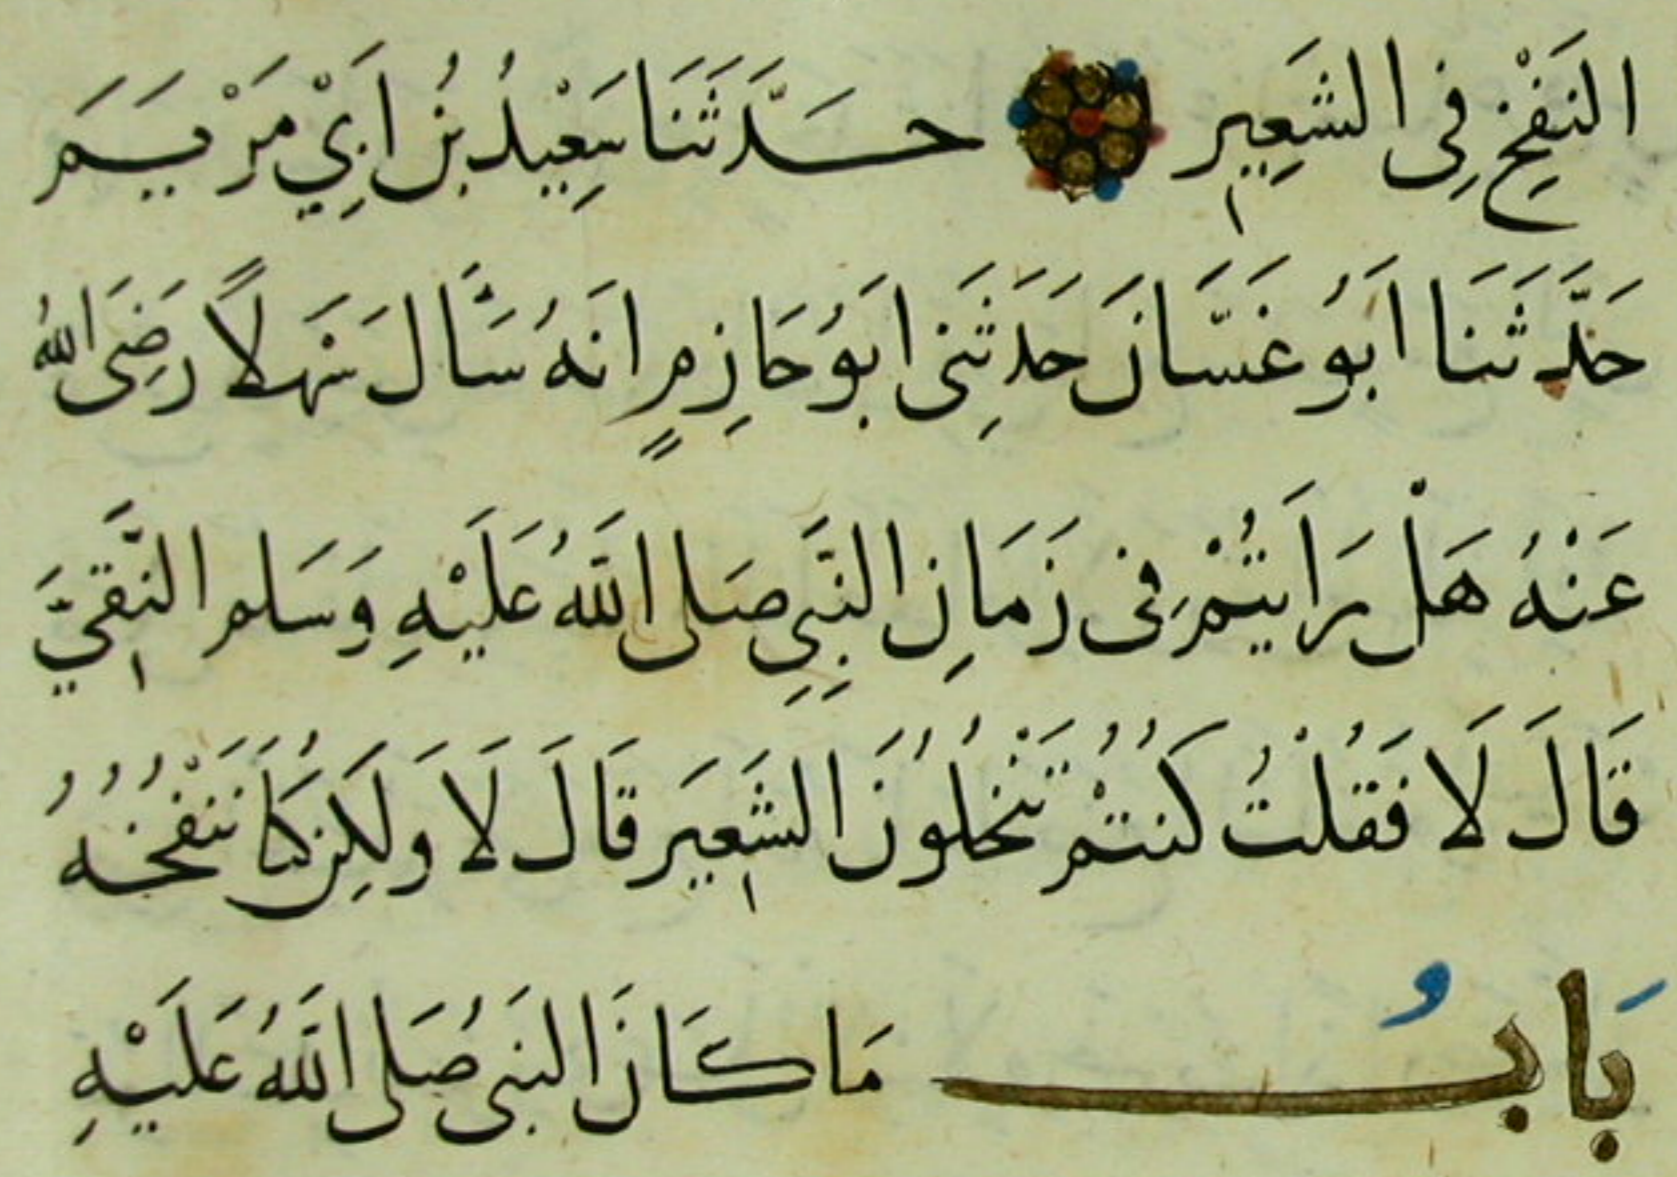 النَفْخِ فِى الشَعِيرِ حَدَّثَنَا سَعِيْدُ بنُ اَبِيْ مَرْيَمَ
حَدَّثَنَا اَبُو غَسَّانَ حَدَثَنِى ابَوُ حَازِمٍ انَهُ سَأَلَ سَهلاً رَضِىَ اللهُ
عَنْهُ هَلْ رَاَيتُمْ فِى زَمَانِ النَّبِيِ صَلى اللَّهُ عَلَيْهِ وَسَلم النَّقيَّ
قَالَ لَا فَقُلْتُ كُنتُمْ تَنْخُلُونَ الشَعيَر قَالَ لَا وَلَكِن كُنَا نَنْفُخُهُ
بَابُ مَا كَانَ النَبىُ صَلى اللَّهُ عَلَيْهِ